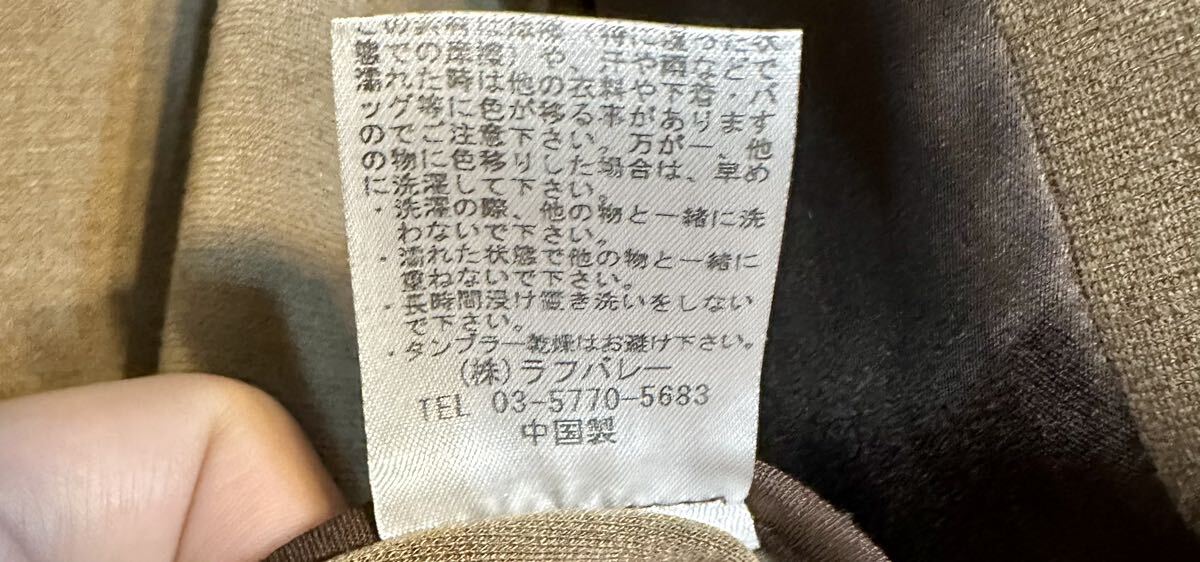 態での摩擦)や、汗や雨などで
濡れた時は他の衣料や下着・バ
ッグ等に色が移る事があります
のでご注意下さい。万が一、他
の物に色移りした場合は、早め
に洗濯して下さい。
・洗濯の際、他の物と一緒に洗
わないで下さい。
・濡れた状態で他の物と一緒に
重ねないで下さい。
・長時間浸け置き洗いをしない
で下さい。
・タンブラー乾燥はお避け下さい。
(株)ラフバレー
TEL 03-5770-5683
中国製